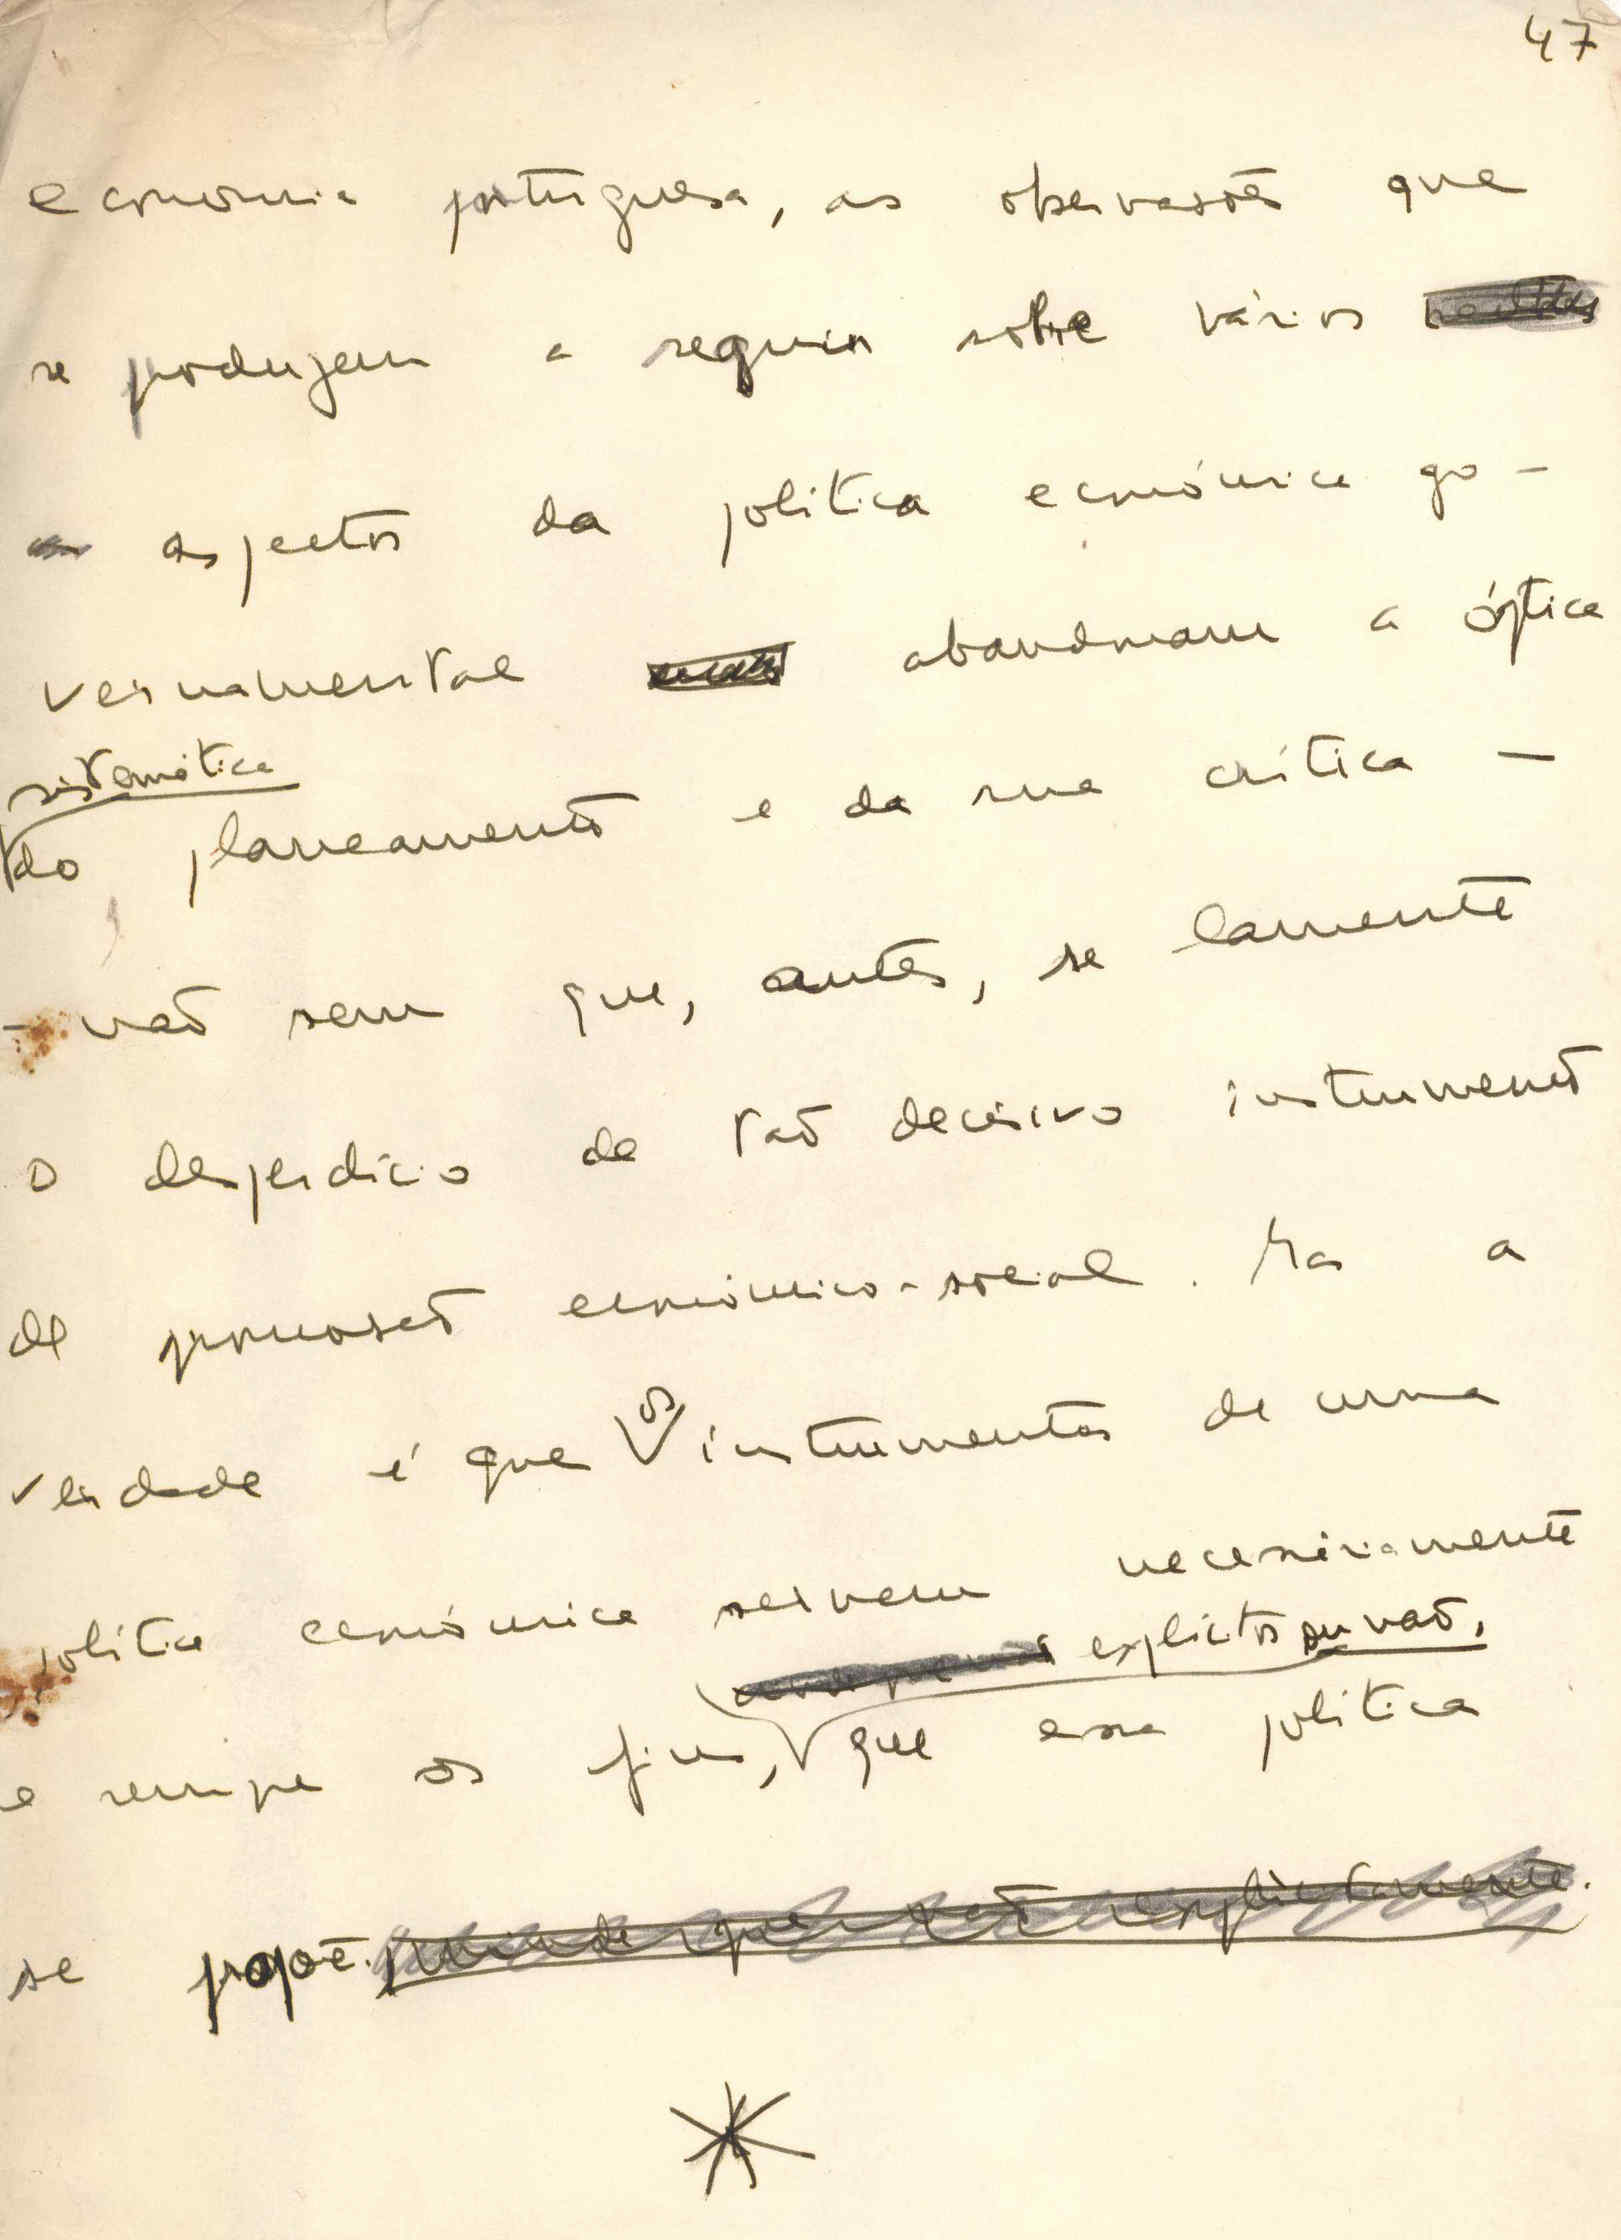 47
economia portuguesa, as observações que
se produzem a seguir sobre vários
aspectos da política económica go-
vernamental abandonam a óptica
sistemática
do planeamento e da sua crítica —
- não sem que, antes, se lamente
o desperdício de tão decisivo instrumento
de promoção económico-social. Mas a
os
verdade é que instrumentos de uma
política económica servem necessàriamente
explícitos ou não,
e sempre os fins, que essa política
se propõe.